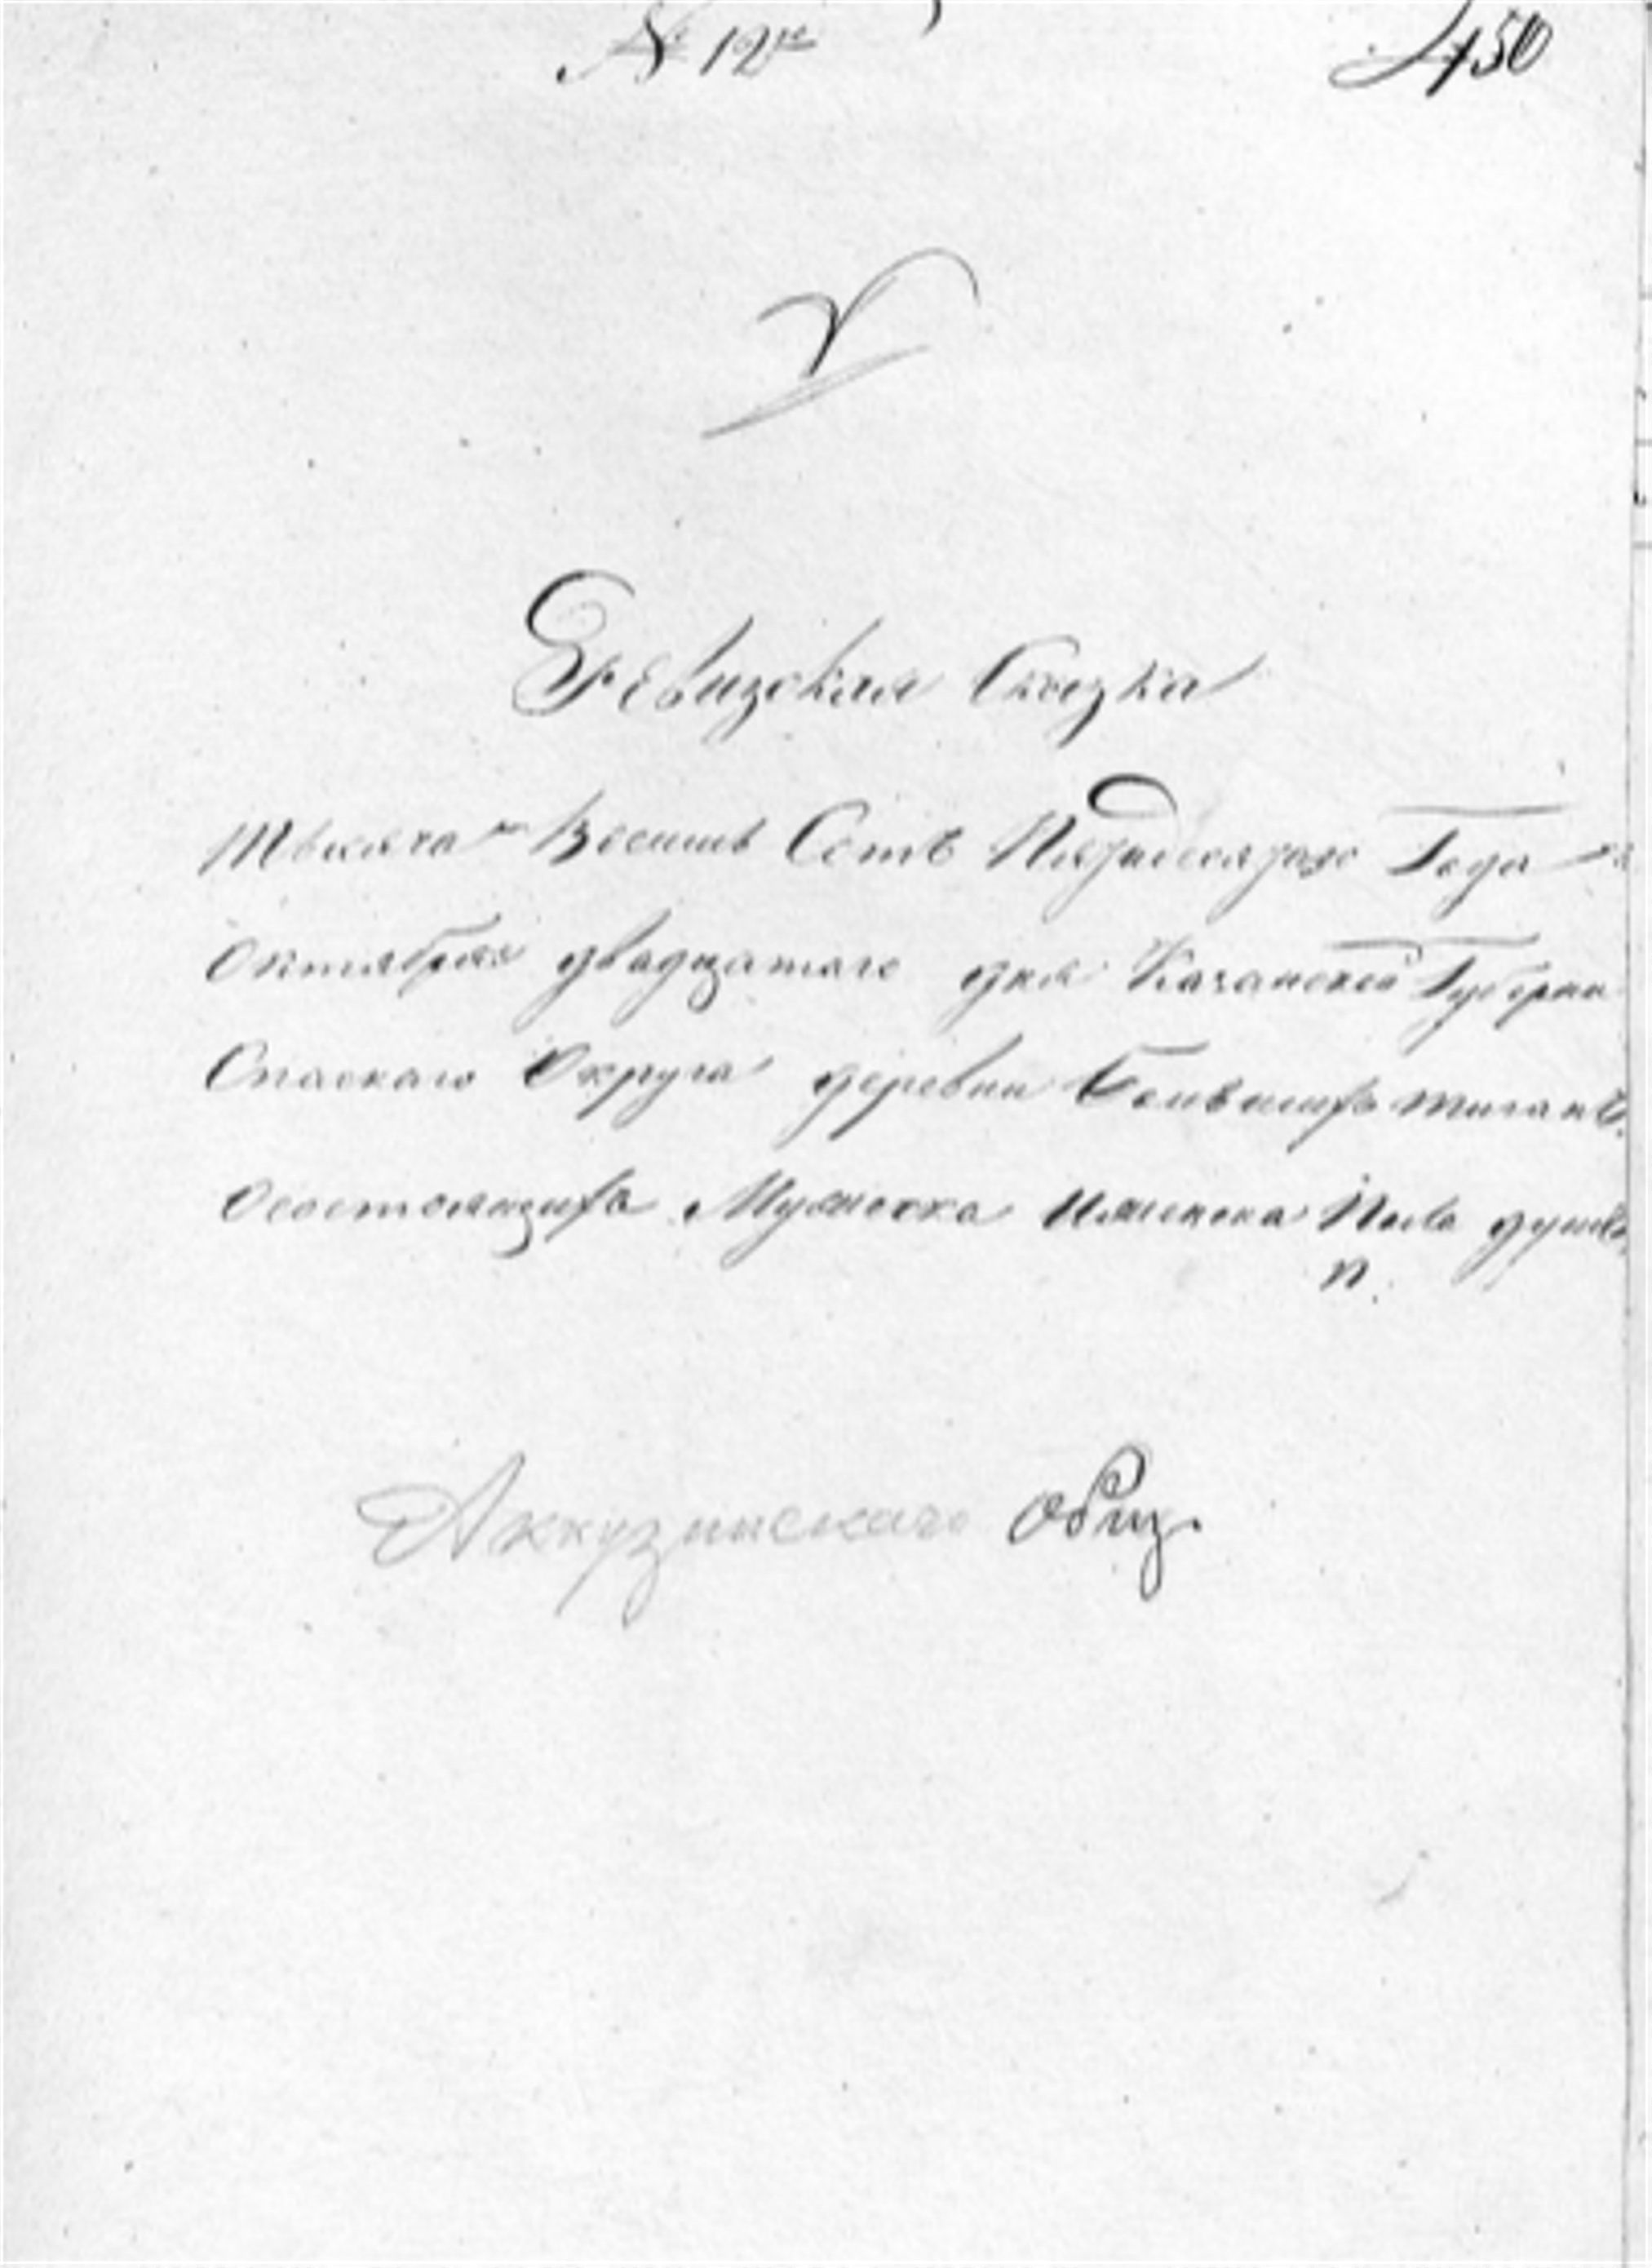 № 12й
450
Ревизская Сказка
Тысяча Восимь Сотъ Пятидесятаго Года
Октября двадцатаго дня Казанской Губернии
Спаскаго Округа деревни Большихъ тиганъ
О состоящихъ Мужеска И женска Пола душъ
п.
Аккузинскаго Общ.